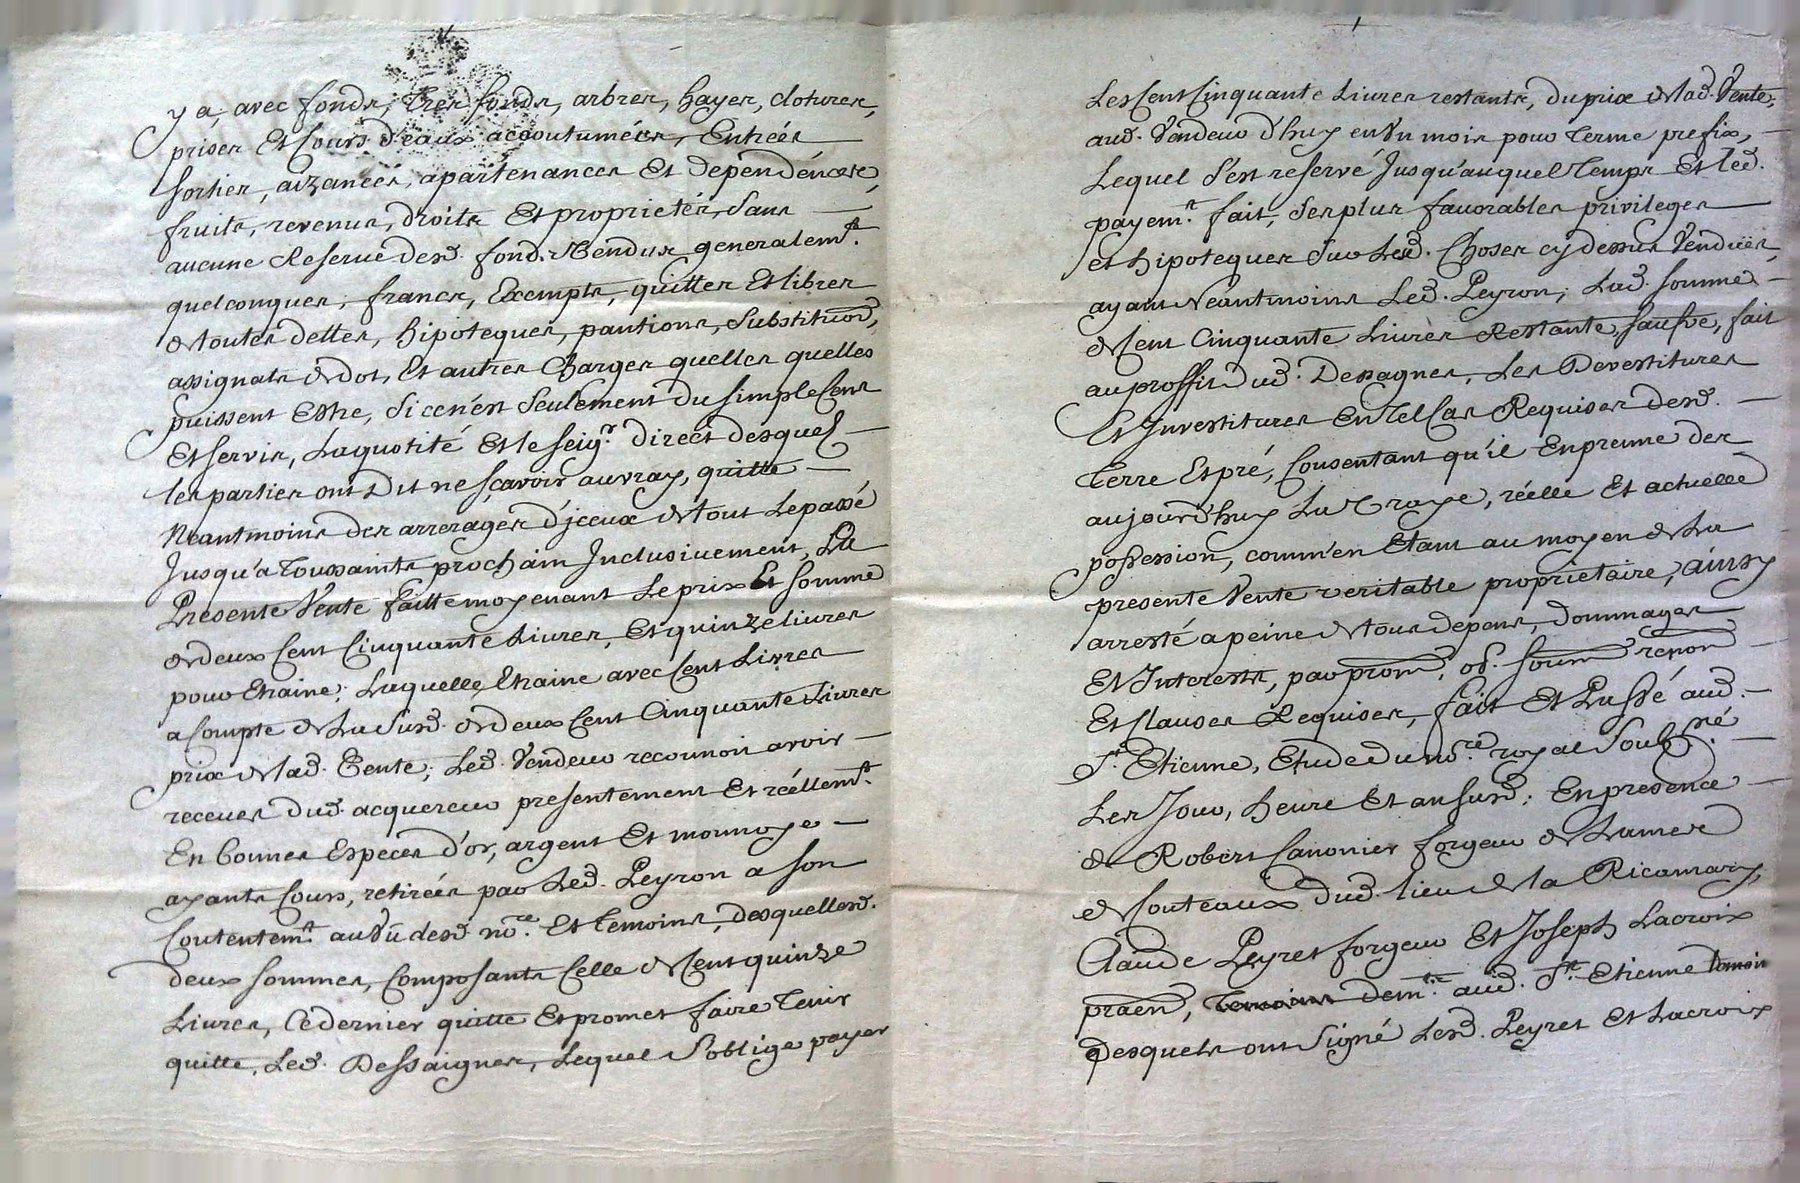 y a, avec fonds, tres fonds, arbres, hayes, clotures,
prises Et Cours d'eaux accoutumées, Entrées
sorties, aizances, apartenances Et dependences,
fruits, revenus, droits Et proprietés, Sans
aucune Reserve desd. fond. Vendus generalemt.
quelconques, francs, Exempts, quittes Et libres
de toutes dettes, hipoteques, pantions, Substituons,
assignats de dot, Et autres Charges quelles quelles
puissent Estre, Si ce n'est Seulement du Simple Cens
Et servis, La quotité Et le seigr. direct desquels
les parties ont Dit ne sçavoir au vray, quitte
Neantmoins des arrerages d'jceux de tout Le passé
Jusqu'a Toussaints prochain Jnclusivement, La
Presente Vente faitte moyenant Le prix Et somme
de deux Cent Cinquante Livres, Et quinze livres
pour Etraine; Laquelle Etraine avec Cent Livres
a Compte de La Susd. de deux Cent Cinquante Livres
prix de lad. Vente; Led. Vendeur reconnoit avoir
receues dud. acquereur presentement Et réellemt.
En bonnes Especes d'or, argent Et monnoye
ayants Cours, retirées par Led. Peyron a son
Contentemt. au Vû desd. nore. Et Temoins, desquelles d.
deux sommes, Composants Celle de Cent quinze
Livres, Ce dernier quitte Et promet faire Tenir
quitte, Led. Dessaignes, Lequel S'oblige payer
Les Cent Cinquante Livres restants, du prix de lad. Vente,
aud. Vendeur d'huy en Vn mois pour Terme prefix,
Lequel S'est reservé Jusqu'auquel Temps Et led.
payemt. fait, Ses plus favorables privileges
et hipoteques Sur Lesd. Choses cy dessus Vendües,
ayant Neantmoins Led. Peyron, Lad. somme
de Cent Cinquante Livres Restante, Saufve, fait
au proffit Dud. Dessagnes, Les Devestitures
Et Jnvestitures En Tel Cas Requises desd.
Terre Et pré, Consentant qu'il En prenne des
aujourd'huy La Vraye, réelle Et actuelle
possession, comm'en Etant au moyen de La
presente Vente veritable proprietaire, ainsy
arresté a peine de tous depens, dommages
Et Jnterests, par prom. ob. soum renon
Et Clauses Requises, fait Et Passé aud.
St. Etienne, Etude du nore. royal Soubsné.
Les Jour, heure Et an susd; En presence
de Robert Canonier forgeur de Lames
de Couteaux dud. lieu de la Ricamary,
Claude Peyret forgeur Et Joseph Lacroix
praen, Temoins demts. aud. St. Etienne temoin
desquels ont Signé Lesd. Peyret Et Lacroix